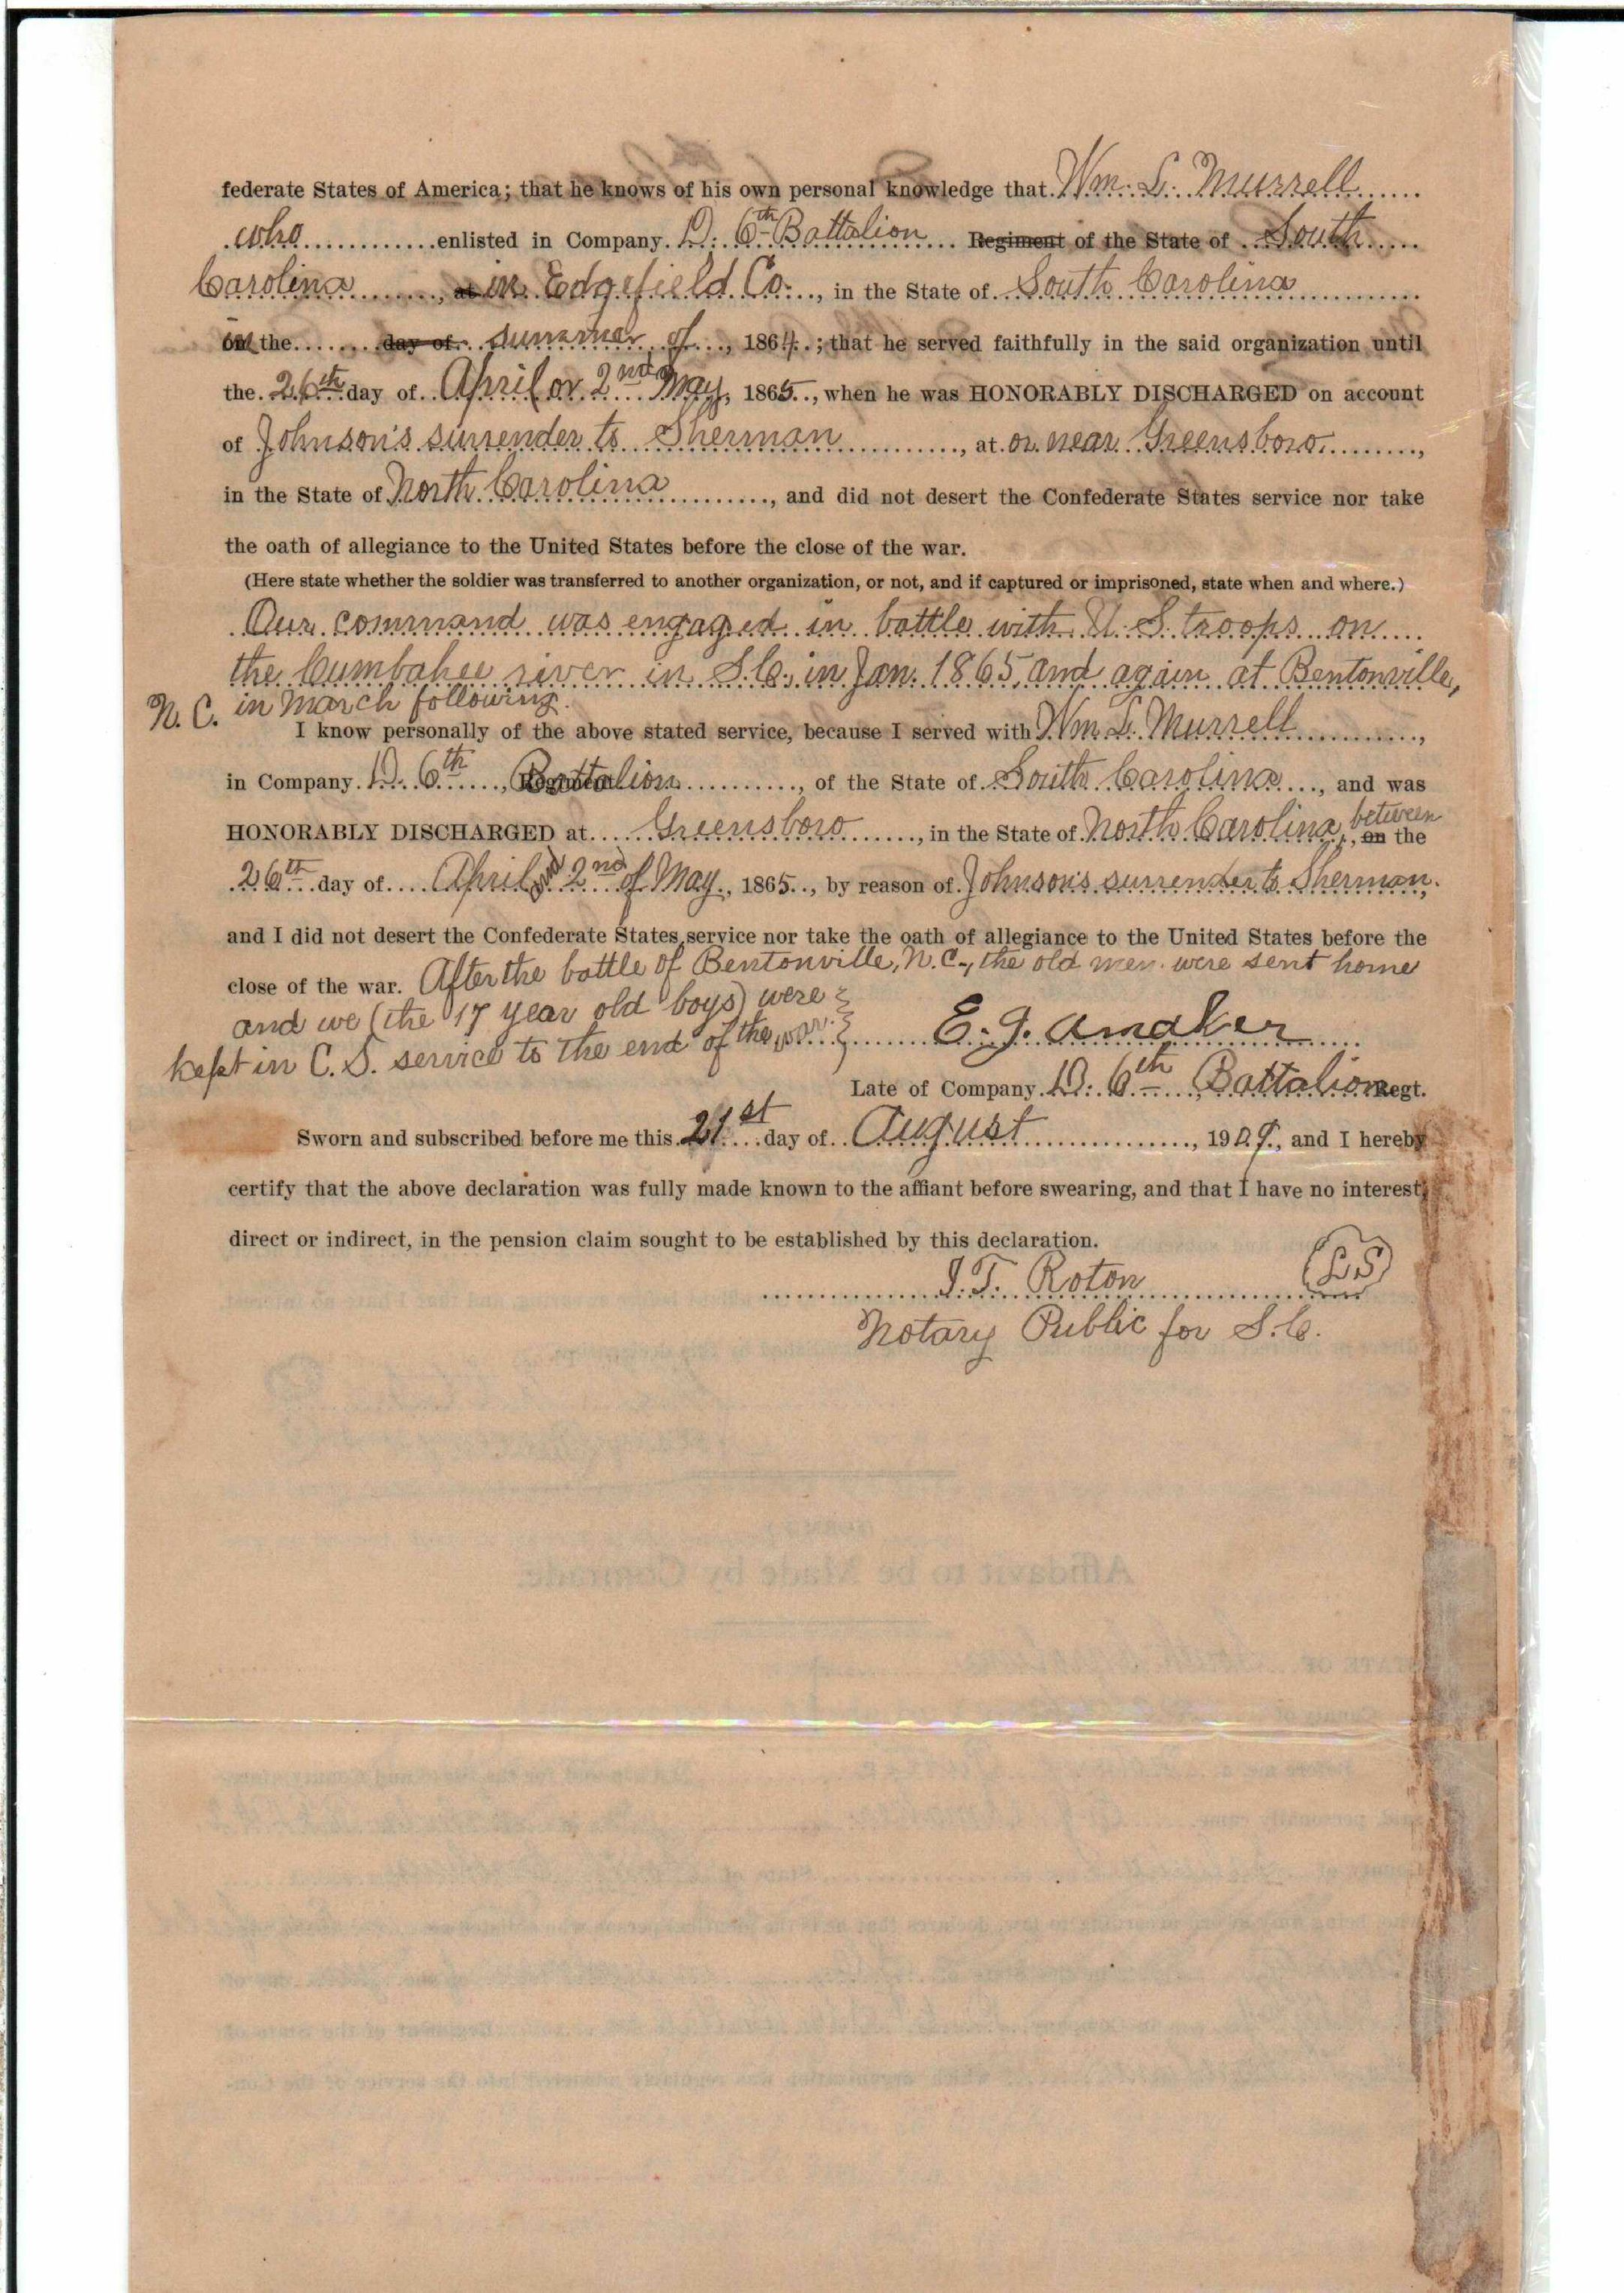 federate States of America; that he knows of his own personal knowledge that Wm. L. Murrell
who enlisted in Company D. 6th Battalion Regiment of the State of South
Carolina, at in Edgefield Co., in the State of South Carolina
in the day of summer of, 1864; that he served faithfully in the said organization until
the 26th day of April (or 2nd May, 1865, when he was HONORABLY DISCHARGED on account
of Johnson's surrender to Sherman, at or near Greensboro,
in the State of North Carolina, and did not desert the Confederate States service nor take
the oath of allegiance to the United States before the close of the war.
(Here state whether the soldier was transferred to another organization, or not, and if captured or imprisoned, state when and where.)
Our command was engaged in battle with U.S. troops on
the Cumbahee river in S.C., in Jan. 1865, and again at Bentonville,
N.C. in March following.
I know personally of the above stated service, because I served with Wm. L. Murrell,
in Company D. 6th, Battalion, of the State of South Carolina, and was
HONORABLY DISCHARGED at Greensboro, in the State of North Carolina, between on the
26th day of April and 2nd of May, 1865, by reason of Johnson's surrender to Sherman,
and I did not desert the Confederate States service nor take the oath of allegiance to the United States before the
close of the war. After the battle of Bentonville, N.C., the old men were sent home
and we (the 17 year old boys) were
kept in C.S. service to the end of the war.
E. J. Amaker
Late of Company D. 6th Battalion Regt.
Sworn and subscribed before me this 21st day of August, 1909, and I hereby
certify that the above declaration was fully made known to the affiant before swearing, and that I have no interest,
direct or indirect, in the pension claim sought to be established by this declaration.
J.T. Roton LS
Notary Public for S.C.